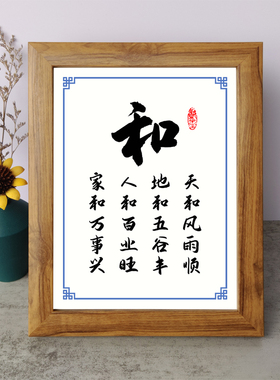 和
天和风雨顺
地和五谷丰
人和百业旺
家和万事兴